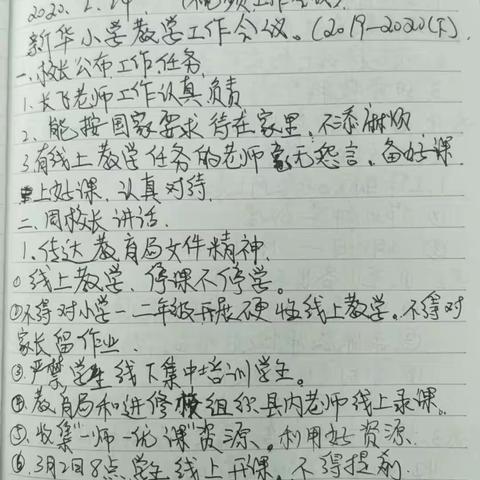 2020.2.24 (视频工作会议)
新华小学教学工作会议。(2019-2020(下)
一、校长公布工作任务,
1、长飞老师工作认真负责
2、能按国家要求待在家里,不添麻烦
3、有线上教学任务的老师毫无怨言、备好课
上好课、认真对待.
二、周校长讲话.
1、传达教育局文件精神.
①线上教学、停课不停学。
②不得对小学一二年级开展硬性线上教学。不得对
家长留作业.
③严禁学生线下集中培训学生。
④教育局和进修校组织县内老师线上录课。
⑤、收集"一师一优课"资源。利用好资源.
⑥、3月2日8点学生线上开课、不得提前.